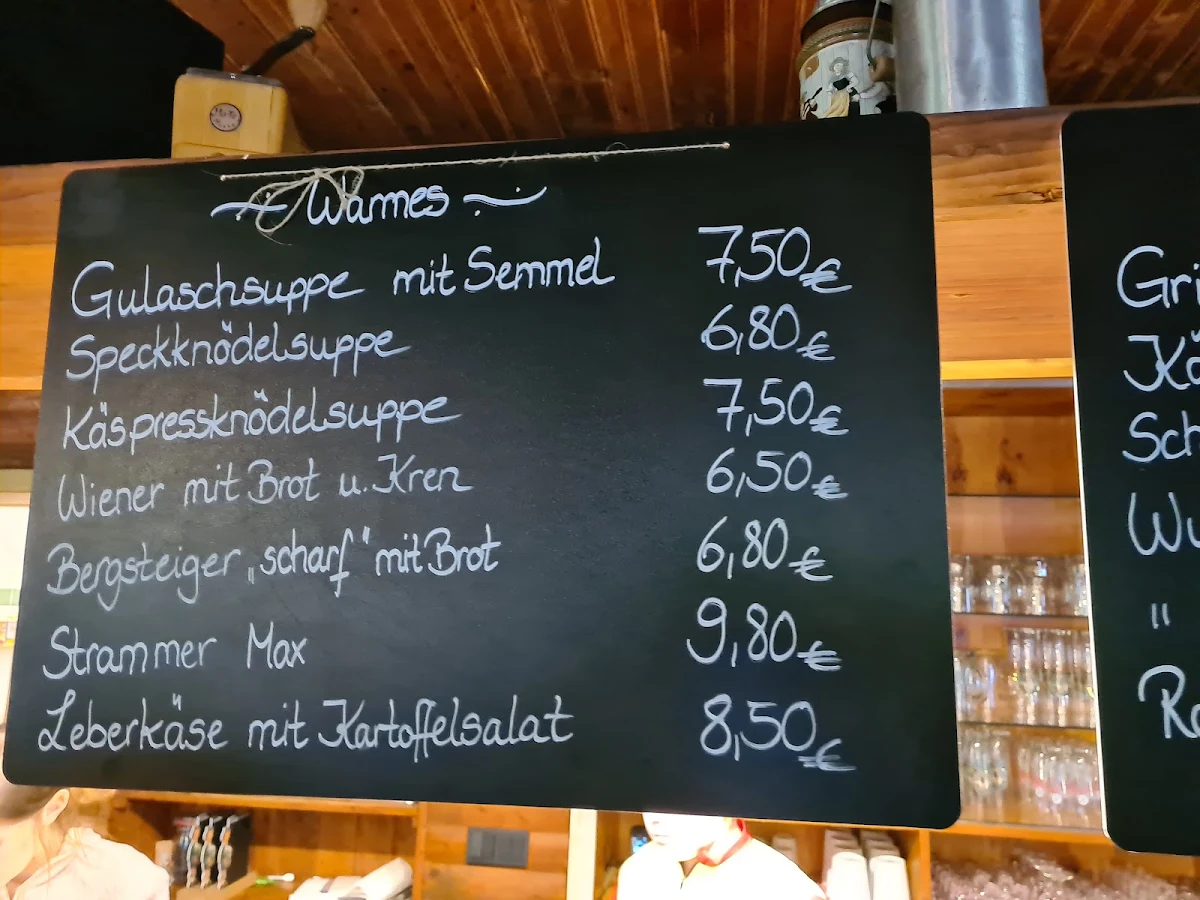 Warmes
Gulaschsuppe mit Semmel 7,50€
Speckknödelsuppe 6,80€
Käspressknödelsuppe 7,50€
Wiener mit Brot u. Kren 6,50€
Bergsteiger „scharf“ mit Brot 6,80€
Strammer Max 9,80€
Leberkäse mit Kartoffelsalat 8,50€
Gri
Kä
Sch
Wu
"